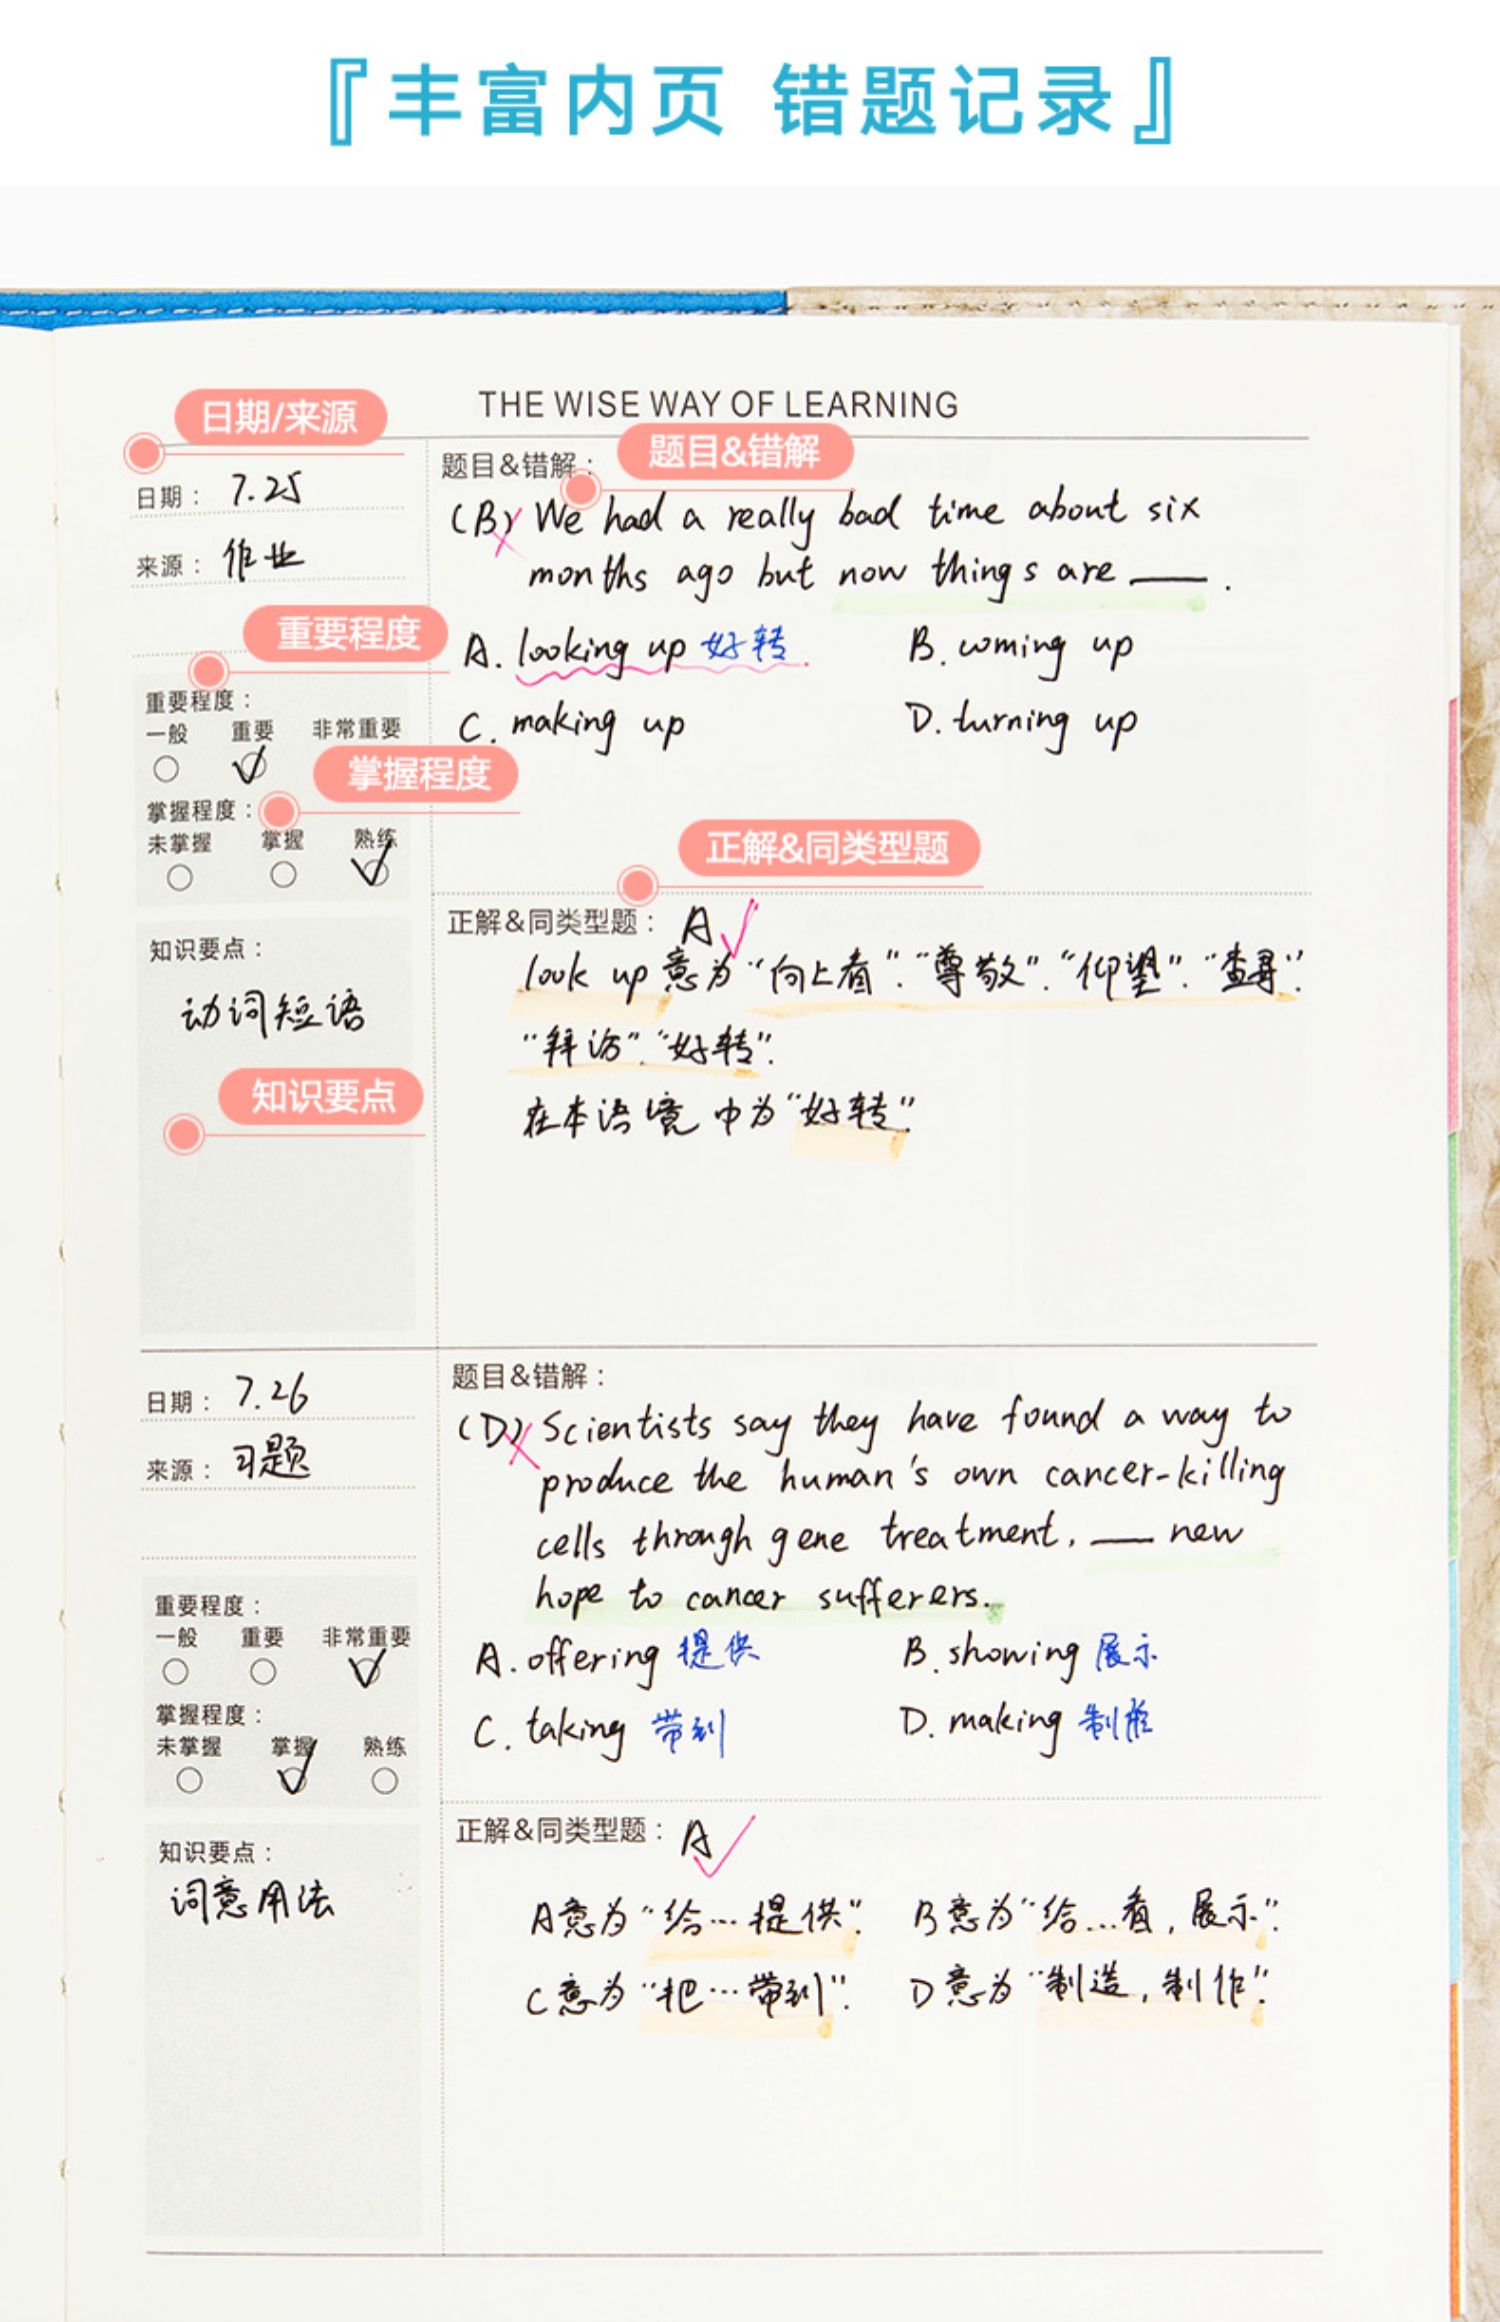 『丰富内页 错题记录』
THE WISE WAY OF LEARNING
日期/来源
日期： 7.25
来源： 作业
重要程度
重要程度：
一般 重要 非常重要
掌握程度
掌握程度：
未掌握 掌握 熟练
知识要点：
动词短语
知识要点
题目&错解
题目&错解：
(B) We had a really bad time about six
months ago but now things are ___ .
A. looking up 好转 B. coming up
C. making up D. turning up
正解&同类型题
正解&同类型题： A
look up 意为“向上看”.“尊敬”.“仰望”.“查寻”.
“拜访”.“好转”.
在本语境中为“好转”.
日期： 7.26
来源： 习题
重要程度：
一般 重要 非常重要
掌握程度：
未掌握 掌握 熟练
知识要点：
词意用法
题目&错解：
(D) Scientists say they have found a way to
produce the human's own cancer-killing
cells through gene treatment, ___ new
hope to cancer sufferers.
A. offering 提供 B. showing 展示
C. taking 带到 D. making 制作
正解&同类型题： A
A意为“给…提供”. B意为“给…看,展示”.
C意为“把…带到”. D意为“制造,制作”.